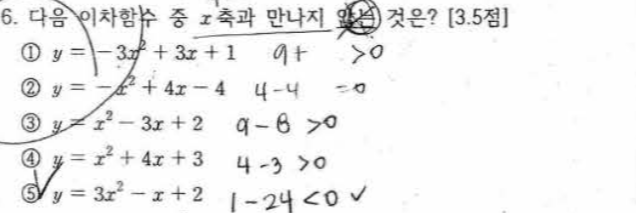 6. 다음 이차함수 중 x축과 만나지 않는 것은? [3.5점]
① y = -3x² + 3x + 1 9+ >0
② y = -x² + 4x - 4 4-4 =0
③ y = x² - 3x + 2 9-8 >0
④ y = x² + 4x + 3 4-3 >0
⑤ y = 3x² - x + 2 1-24<0 ✓